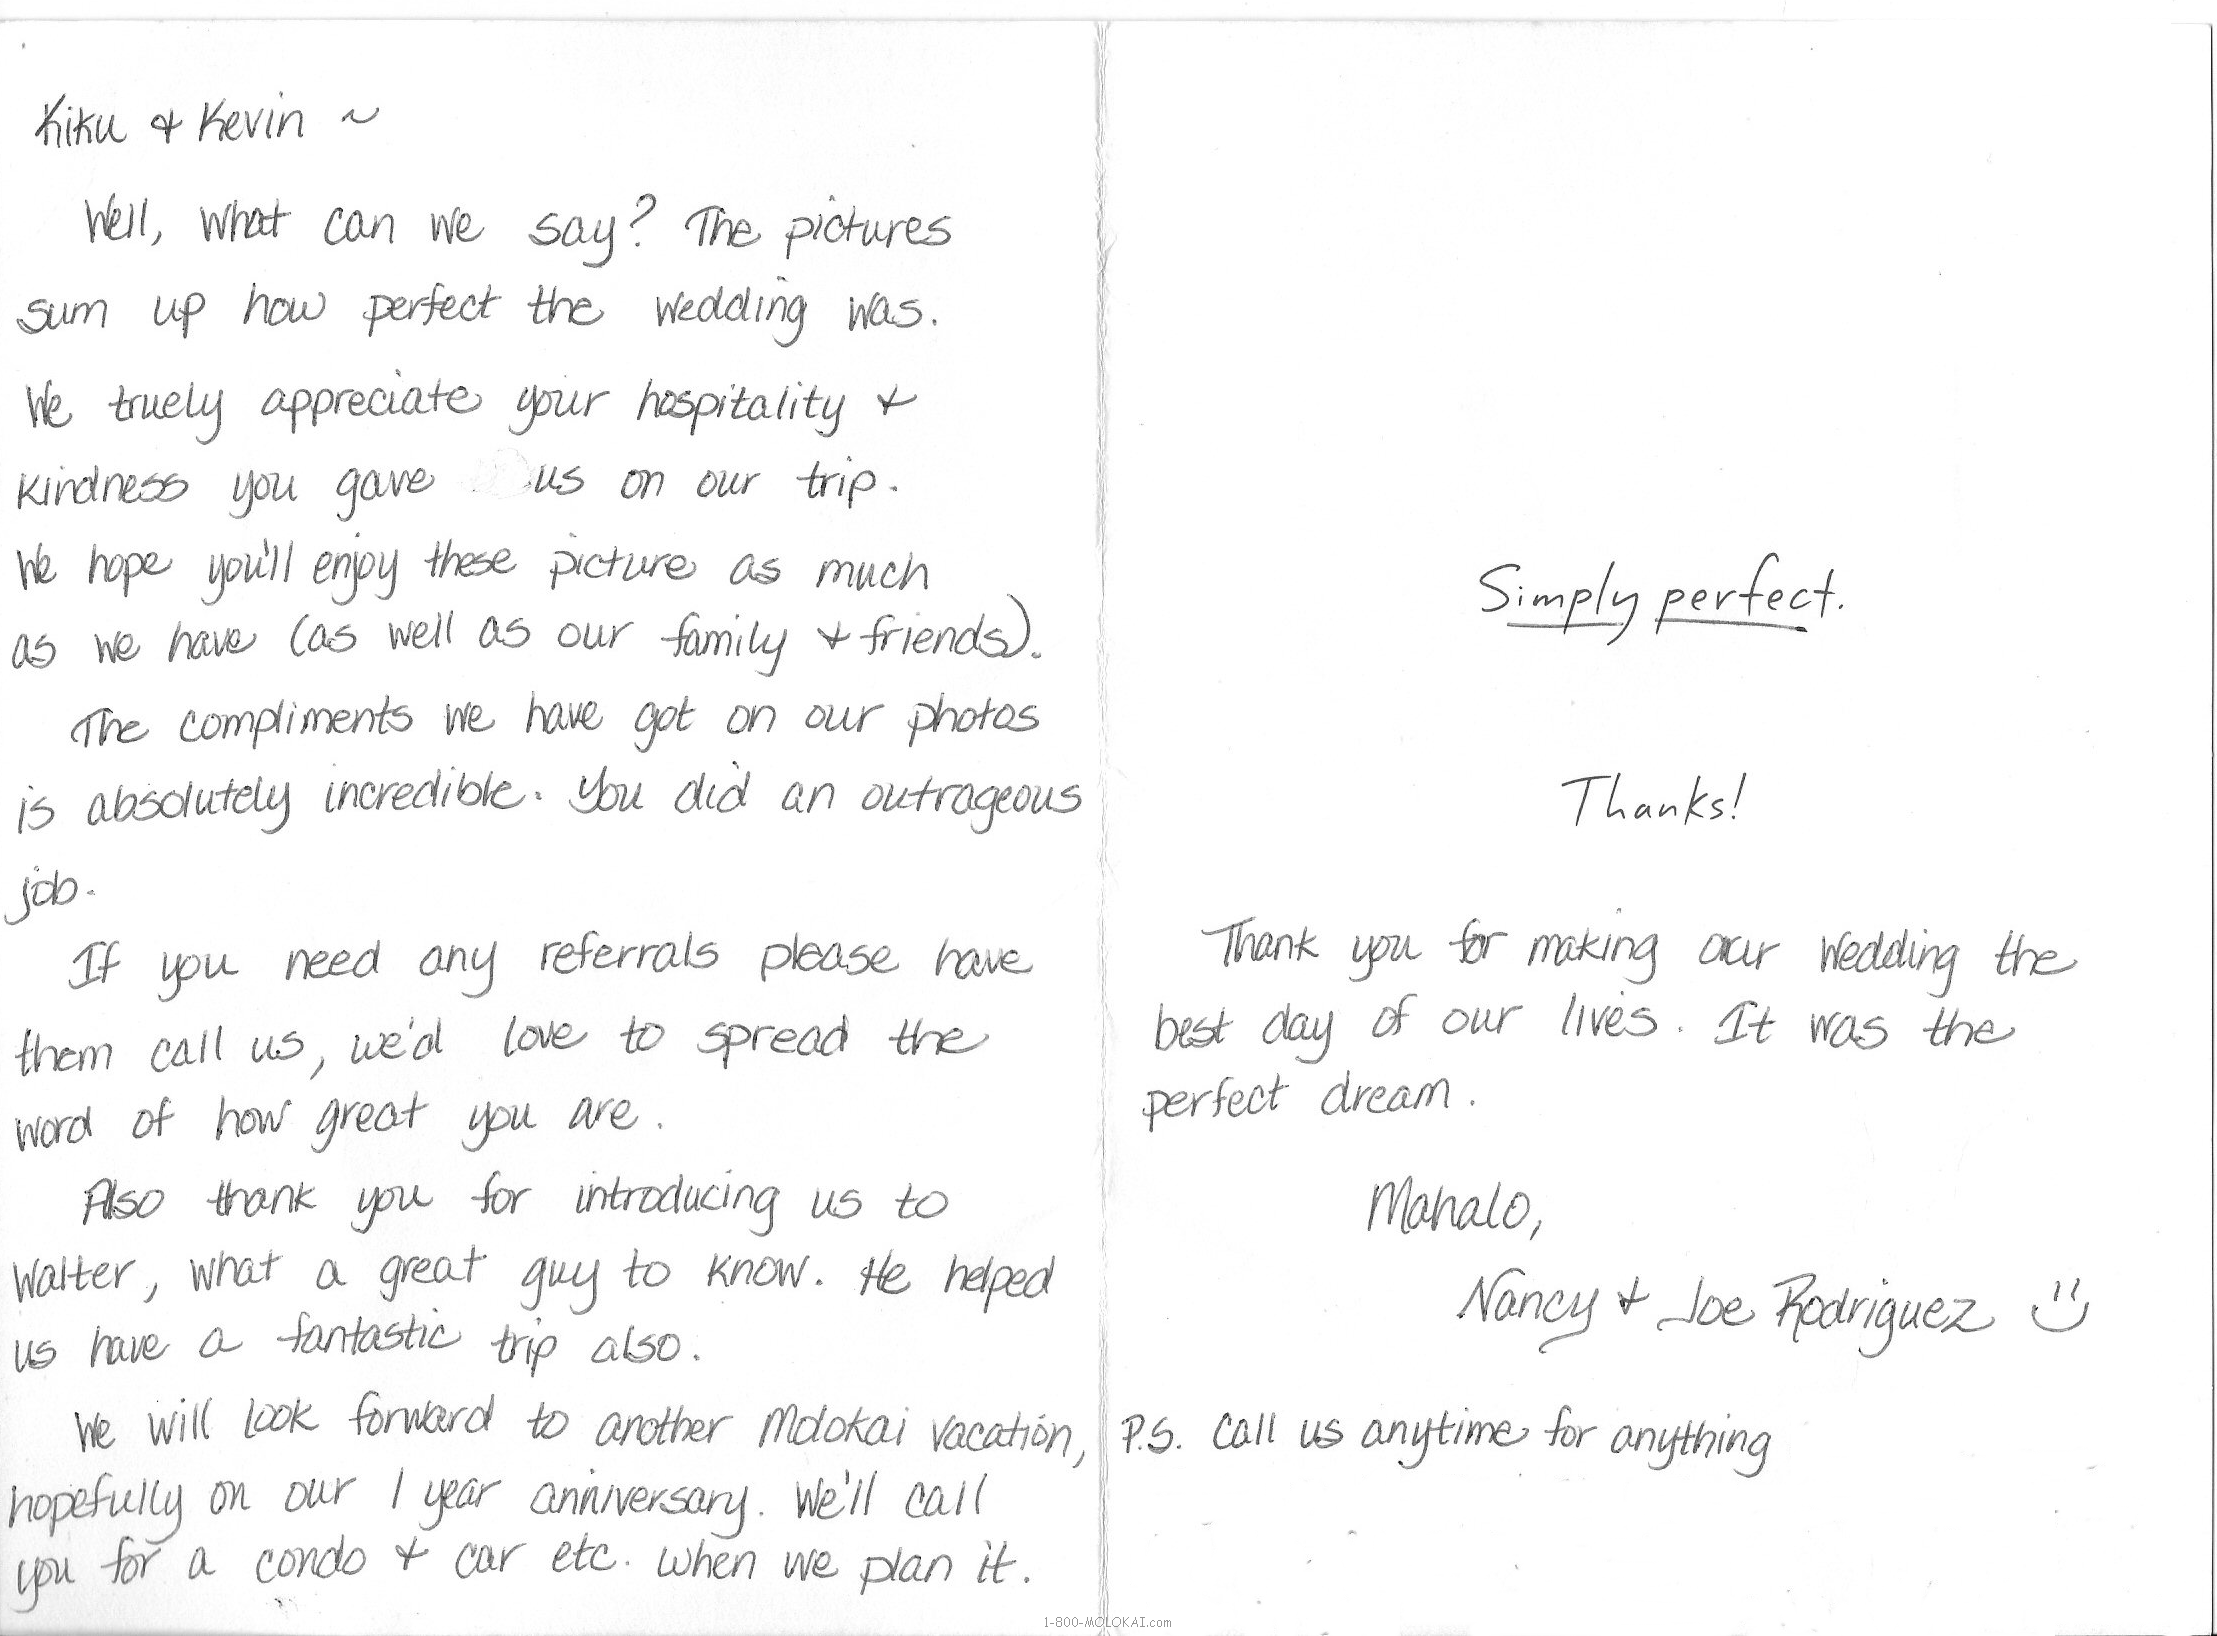 Kiku & Kevin ~
Well, what can we say? The pictures
sum up how perfect the wedding was.
We truely appreciate your hospitality &
kindness you gave us on our trip.
We hope you'll enjoy these picture as much
as we have (as well as our family & friends).
The compliments we have got on our photos
is absolutely incredible. You did an outrageous
job.
If you need any referrals please have
them call us, we'd love to spread the
word of how great you are.
Also thank you for introducing us to
Walter, what a great guy to know. He helped
us have a fantastic trip also.
We will look forward to another Molokai vacation,
hopefully on our 1 year anniversary. We'll call
you for a condo & car etc. when we plan it.
Simply perfect.
Thanks!
Thank you for making our wedding the
best day of our lives. It was the
perfect dream.
Mahalo,
Nancy & Joe Rodriguez
P.S. Call us anytime for anything
1-800-MOLOKAI.com